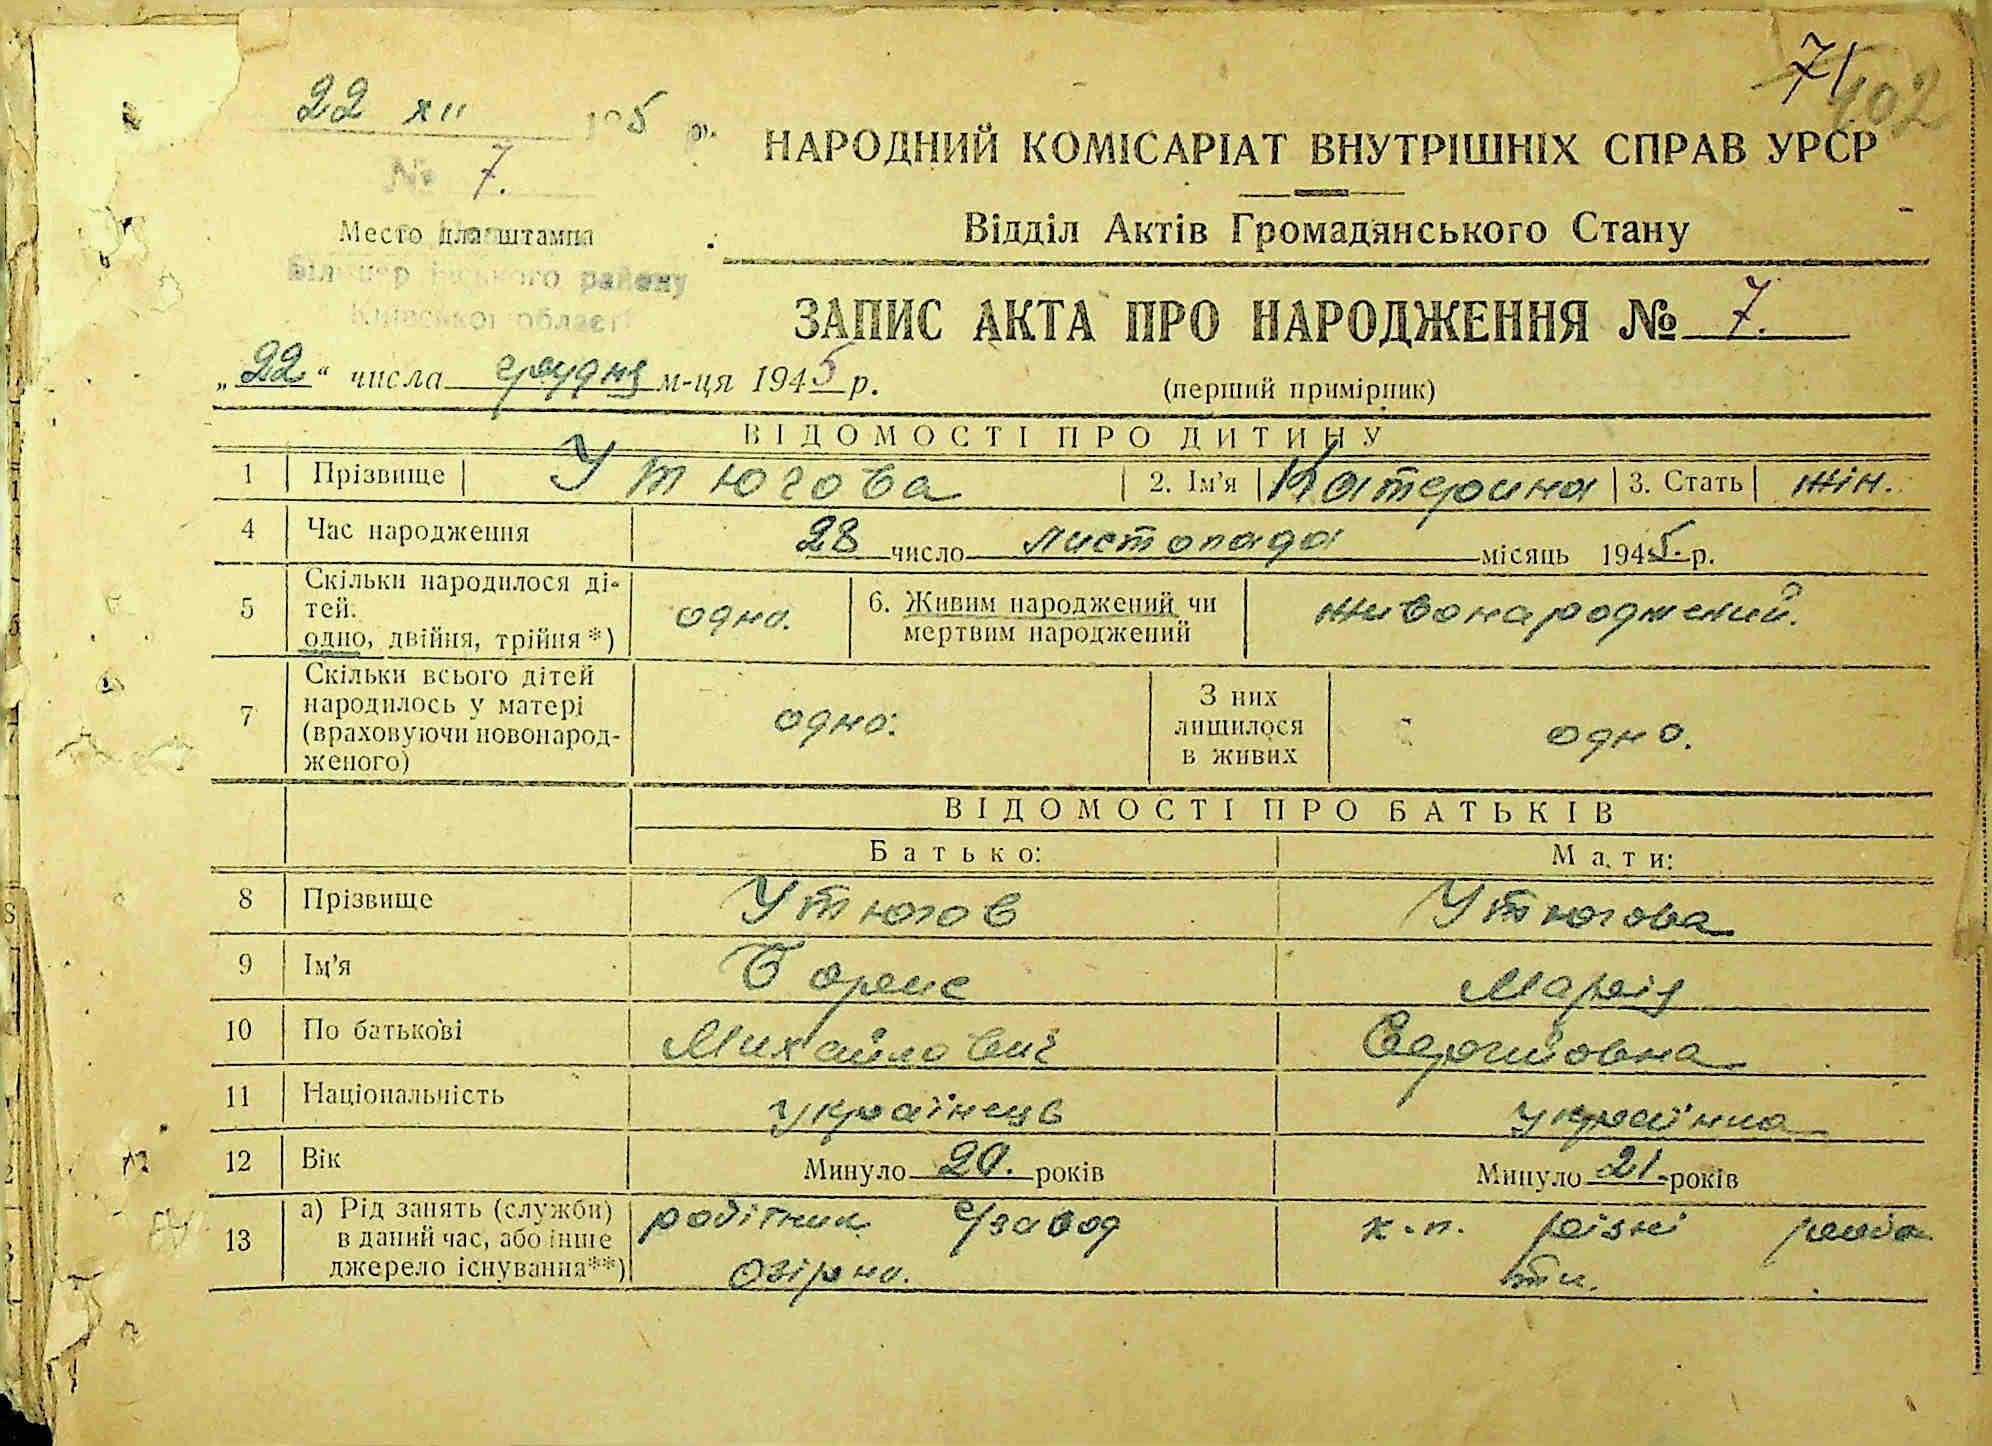 71
402
22 XII 1945 р.
№ 7.
Место для штампа
району
Київської області
НАРОДНИЙ КОМІСАРІАТ ВНУТРІШНІХ СПРАВ УРСР
Відділ Актів Громадянського Стану
ЗАПИС АКТА ПРО НАРОДЖЕННЯ № 7.
„22“ числа грудня м-ця 1945 р.
(перший примірник)
ВІДОМОСТІ ПРО ДИТИНУ
1 Прізвище Утюгова 2. Ім'я Катерина 3. Стать жін.
4 Час народження 28 число листопада місяць 1945 р.
5 Скільки народилося ді-
тей.
одно, двійня, трійня*) одно. 6. Живим народжений чи
мертвим народжений живонароджений.
7 Скільки всього дітей
народилось у матері
(враховуючи новонарод-
женого) одно. З них
лишилося
в живих одно.
ВІДОМОСТІ ПРО БАТЬКІВ
Батько: Мати:
8 Прізвище Утюгов Утюгова
9 Ім'я Борис Марія
10 По батькові Михайлович
11 Національність українець українка
12 Вік Минуло 20. років Минуло 21 років
13 а) Рід занять (служби)
в даний час, або інше
джерело існування**) робітник с/завод
Озірно. к.п. різні робо
ти.